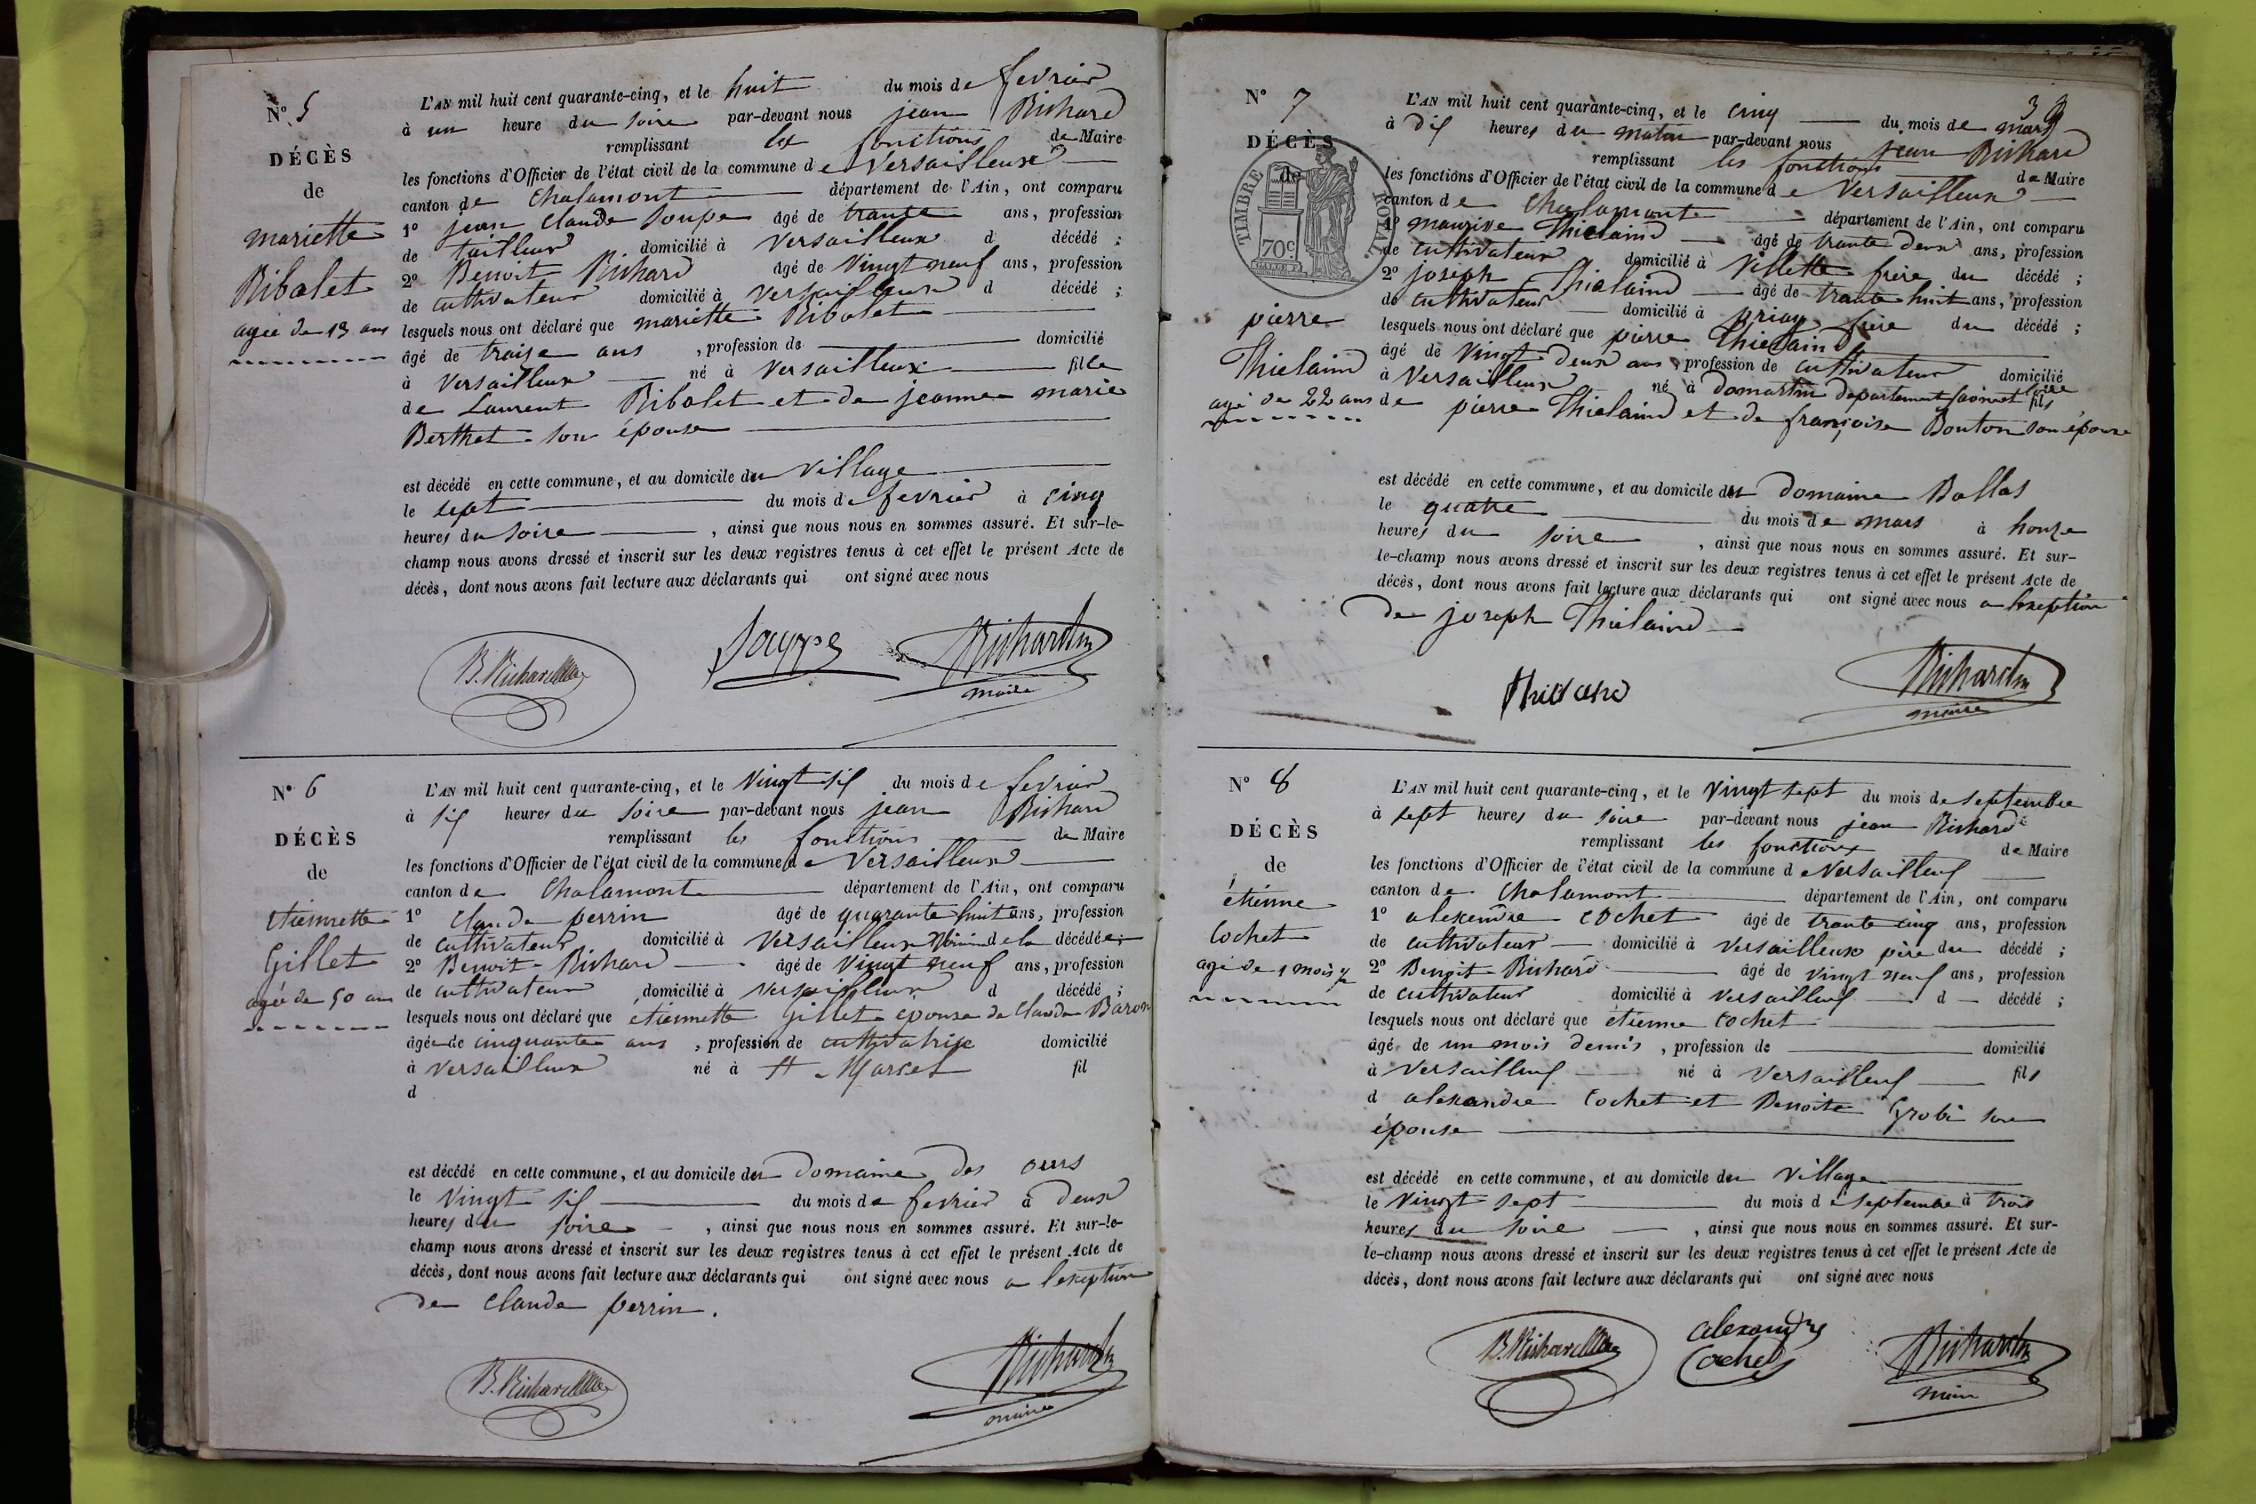 N° 5
DÉCÈS
de
mariette
Ribolet
agée de 13 ans
L'AN mil huit cent quarante-cinq, et le huit du mois de fevrier
à un heure du soire par-devant nous jean Richard
remplissant les fonctions de Maire
les fonctions d'Officier de l'état civil de la commune de Versailleux
canton de Chalamont département de l'Ain, ont comparu
1° jean claude soupe âgé de trante ans, profession
de tailleur domicilié à Versailleux d décédé ;
2° Benoit Richard âgé de vingt neuf ans, profession
de cultivateur domicilié à versailleux d décédé ;
lesquels nous ont déclaré que mariette Ribolet
âgé de traise ans , profession de domicilié
à Versailleux né à Versailleux fille
de Laurent Ribolet et de jeanne marie
Berthet son épouse
est décédé en cette commune, et au domicile du village
le sept du mois de fevrier à cinq
heures du soire , ainsi que nous nous en sommes assuré. Et sur-le-
champ nous avons dressé et inscrit sur les deux registres tenus à cet effet le présent Acte de
décès, dont nous avons fait lecture aux déclarants qui ont signé avec nous
B. Richard Souppe Richard
maire
N° 6
DÉCÈS
de
étiennette
Gillet
agée de 50 ans
L'AN mil huit cent quarante-cinq, et le vingt six du mois de fevrier
à six heures du soire par-devant nous jean Richard
remplissant les fonctions de Maire
les fonctions d'Officier de l'état civil de la commune de Versailleux
canton de Chalamont département de l'Ain, ont comparu
1° claude perrin âgé de quarante huit ans, profession
de cultivateur domicilié à Versailleux voisin de la décédée ;
2° Benoit Richard âgé de vingt neuf ans, profession
de cultivateur domicilié à versailleux d décédé ;
lesquels nous ont déclaré que étiennette Gillet épouse de Claude Baron
âgée de cinquante ans , profession de cultivatrix domicilié
à versailleux né à St Marcel fil
d
est décédé en cette commune, et au domicile du domaine des ours
le vingt six du mois de fevrier à deux
heures du soire , ainsi que nous nous en sommes assuré. Et sur-le-
champ nous avons dressé et inscrit sur les deux registres tenus à cet effet le présent Acte de
décès, dont nous avons fait lecture aux déclarants qui ont signé avec nous a l'exeption
de claude perrin.
B. Richard Richard
maire
39
N° 7
DÉCÈS
de
TIMBRE ROYAL
70c
pierre
Thielaind
agé de 22 ans
L'AN mil huit cent quarante-cinq, et le cinq du mois de mars
à dix heures du matin par-devant nous jean Richard
remplissant les fonctions de Maire
les fonctions d'Officier de l'état civil de la commune de Versailleux
canton de Chalamont département de l'Ain, ont comparu
1° maurive Thielaind âgé de trante deux ans, profession
de cultivateur domicilié à Villette frère du décédé ;
2° joseph Thielaind âgé de trante huit ans, profession
de cultivateur domicilié à priay frère du décédé ;
lesquels nous ont déclaré que pierre Thielaind
âgé de vingt deux ans , profession de cultivateur domicilié
à Versailleux né à domartin departement saône et loire fils
de pierre Thielaind et de françoise Bouton son épouse
est décédé en cette commune, et au domicile du domaine Ballas
le quatre du mois de mars à honze
heures du soire , ainsi que nous nous en sommes assuré. Et sur-
le-champ nous avons dressé et inscrit sur les deux registres tenus à cet effet le présent Acte de
décès, dont nous avons fait lecture aux déclarants qui ont signé avec nous a l'exeption
de joseph Thielaind
Richard
maire
N° 8
DÉCÈS
de
étienne
Cochet
agé de 1 mois 1/2
L'AN mil huit cent quarante-cinq, et le vingt sept du mois de septembre
à sept heures du soire par-devant nous jean Richard
remplissant les fonctions de Maire
les fonctions d'Officier de l'état civil de la commune de Versailleux
canton de Chalamont département de l'Ain, ont comparu
1° alexendre cochet âgé de trante cinq ans, profession
de cultivateur domicilié à versailleux père du décédé ;
2° Benoit Richard âgé de vingt neuf ans, profession
de cultivateur domicilié à Versailleux d décédé ;
lesquels nous ont déclaré que étienne Cochet
âgé de un mois demis , profession de domicilié
à Versailleux né à Versailleux fils
d alexandre Cochet et Benoite Grobi son
épouse
est décédé en cette commune, et au domicile du village
le vingt sept du mois de septembre à trois
heures du soire , ainsi que nous nous en sommes assuré. Et sur-
le-champ nous avons dressé et inscrit sur les deux registres tenus à cet effet le présent Acte de
décès, dont nous avons fait lecture aux déclarants qui ont signé avec nous
B. Richard alexandre Cochet Richard
maire